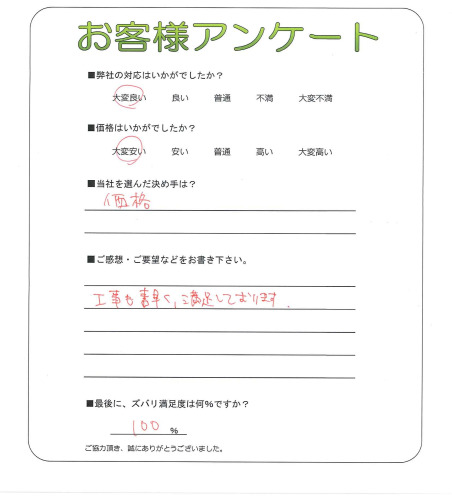 お客様アンケート
■弊社の対応はいかがでしたか？
大変良い 良い 普通 不満 大変不満
■価格はいかがでしたか？
大変安い 安い 普通 高い 大変高い
■当社を選んだ決め手は？
価格
■ご感想・ご要望などをお書き下さい。
工事も 早く、満足しております.
■最後に、ズバリ満足度は何%ですか？
100 %
ご協力頂き、誠にありがとうございました。